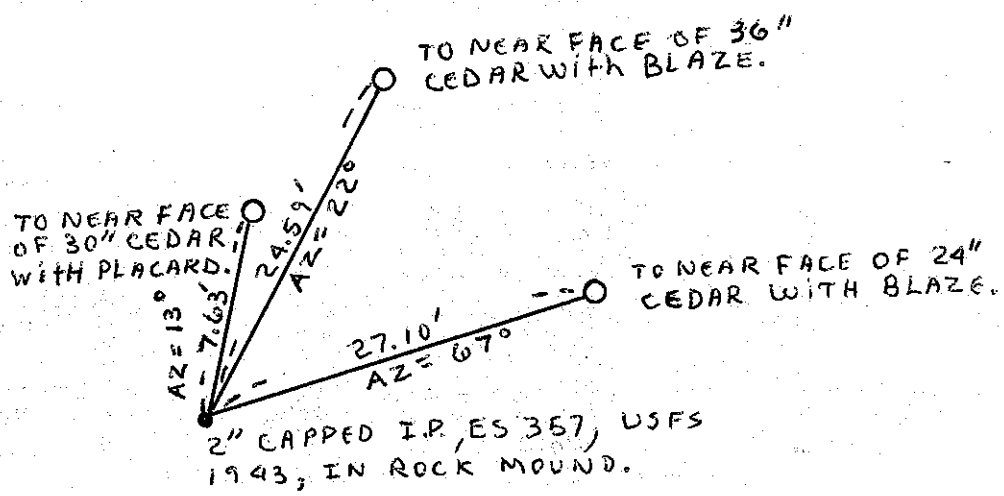 TO NEAR FACE OF 36"
CEDAR With BLAZE.
TO NEAR FACE
OF 30" CEDAR
With PLACARD.
AZ = 13°
7.63'
24.59'
AZ = 22°
TO NEAR FACE OF 24"
CEDAR WITH BLAZE.
27.10'
AZ = 67°
2" CAPPED I.P., ES 357, USFS
1943, IN ROCK MOUND.